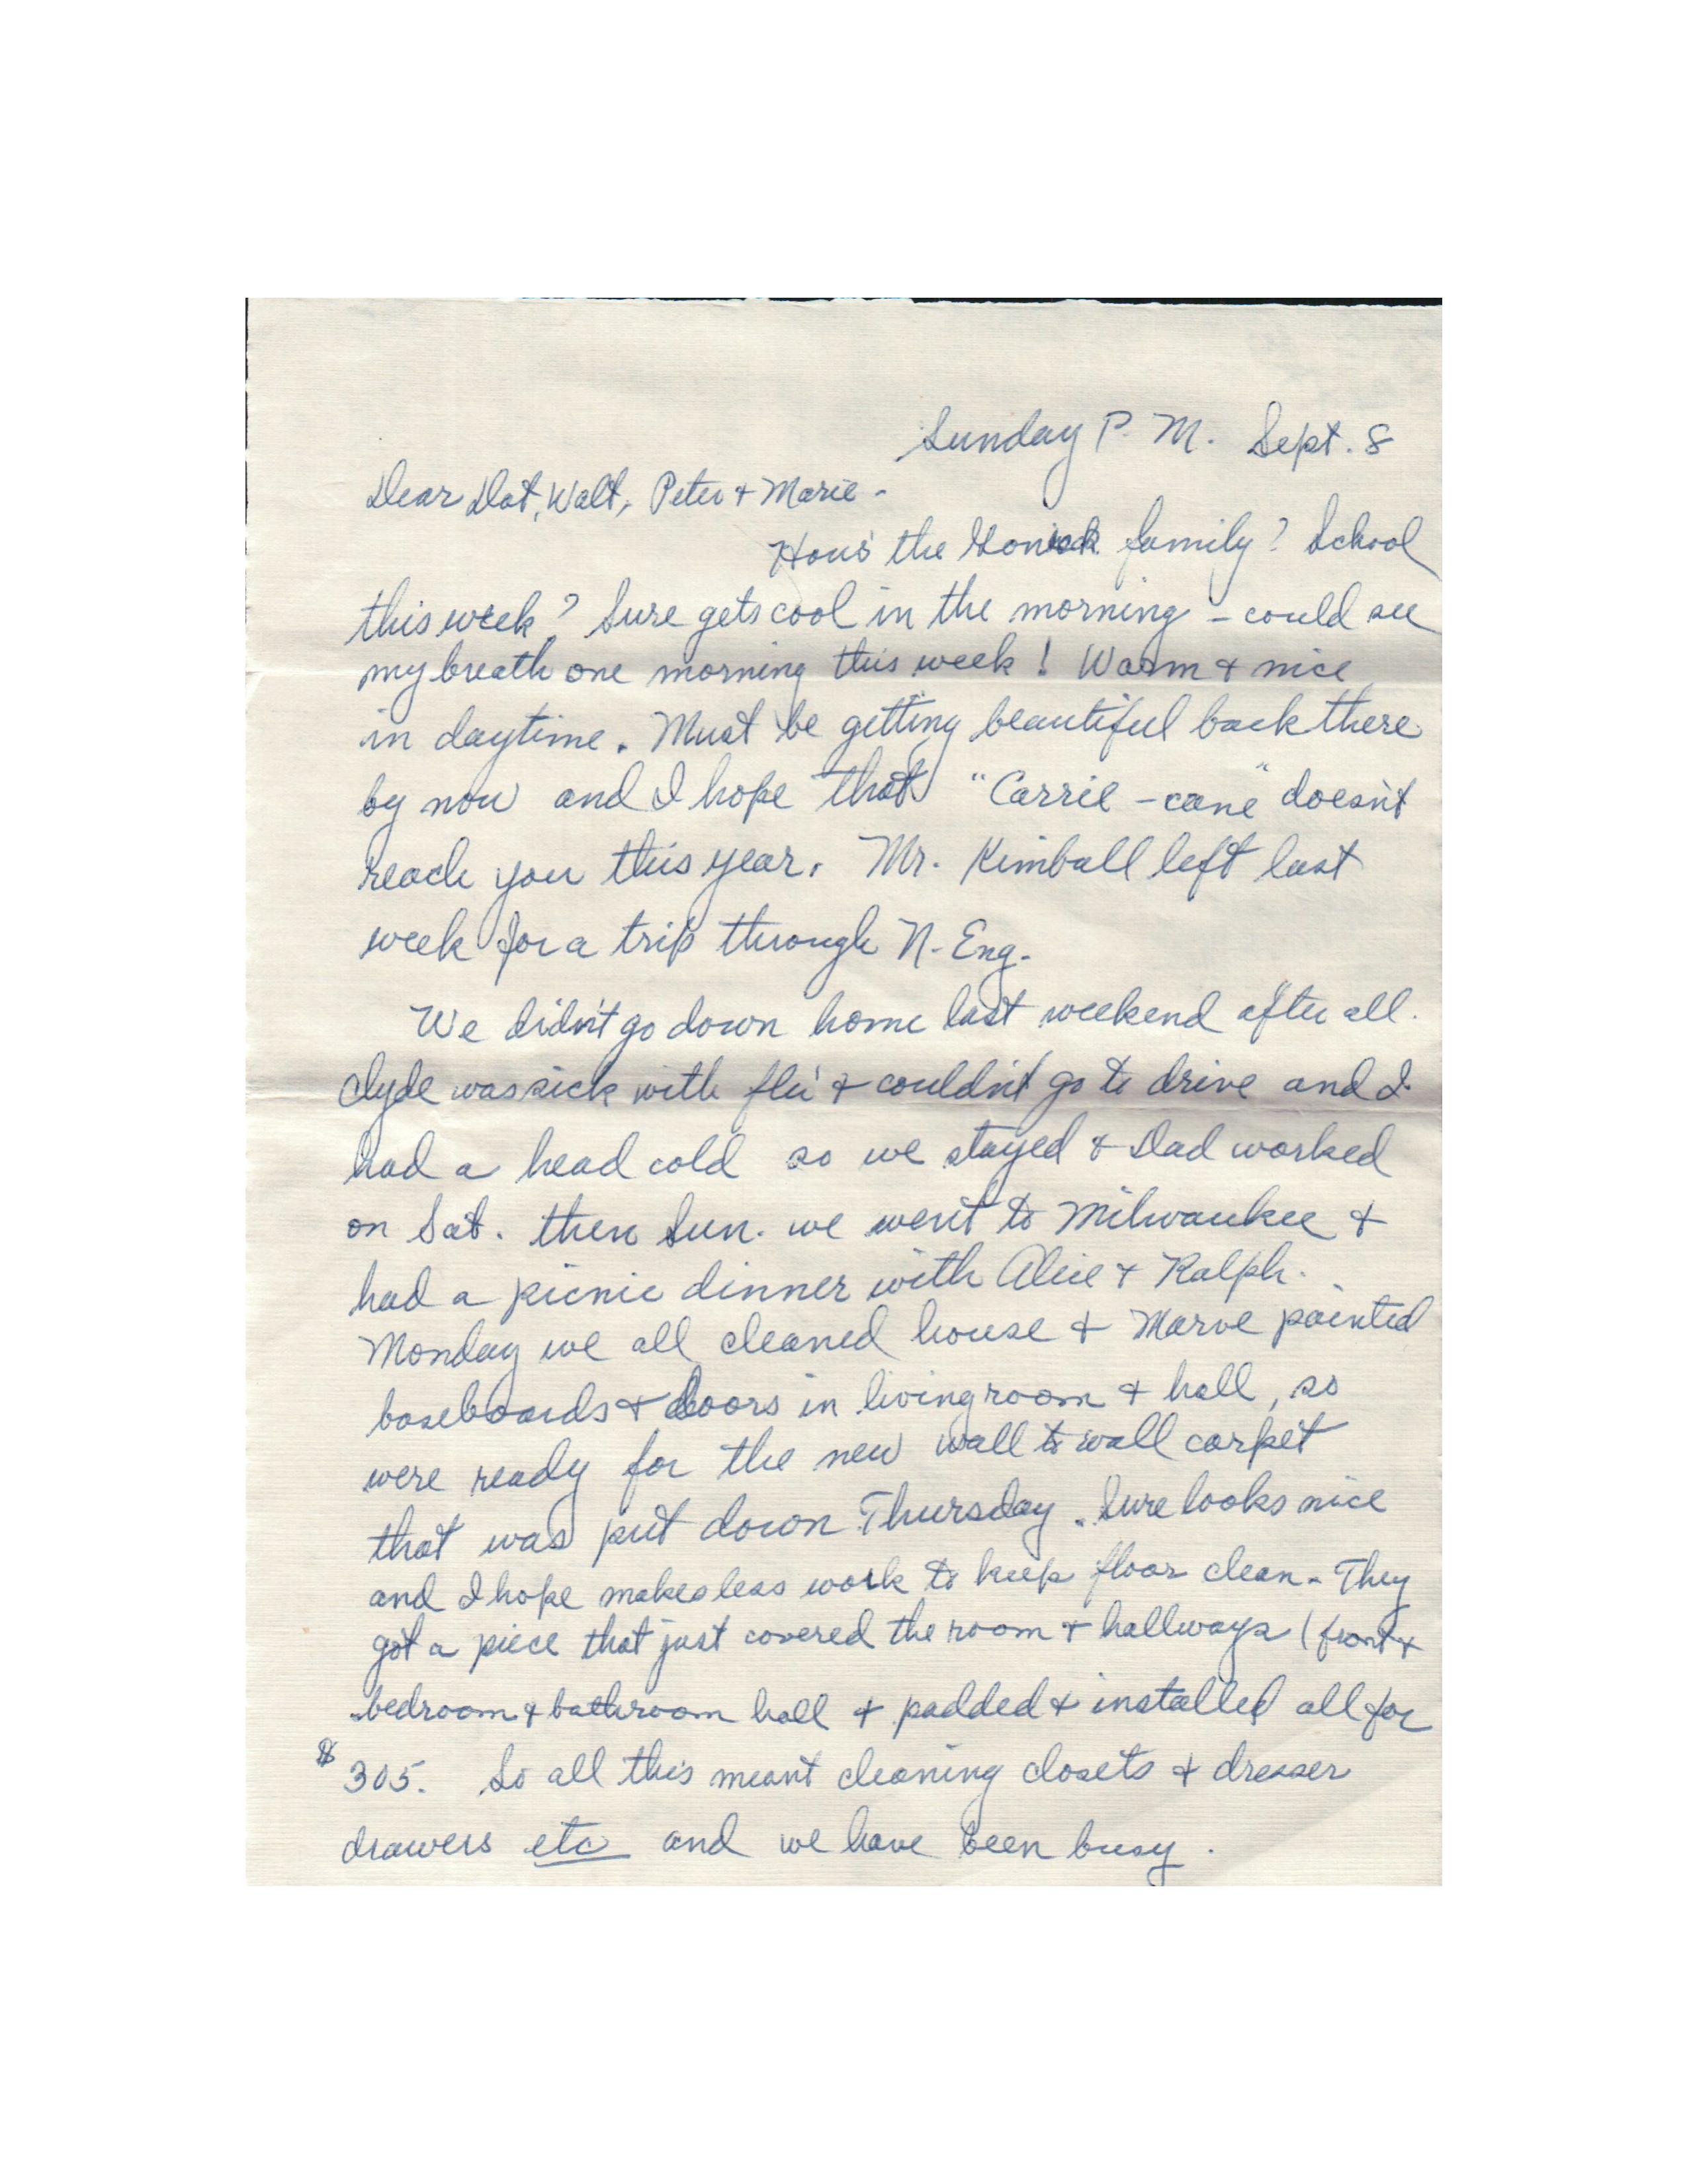 Sunday P. M. Sept. 8
Dear Dot, Walt, Peter & Marie -
How's the family? School
this week? Sure gets cool in the morning - could see
my breath one morning this week! Warm & nice
in daytime. Must be getting beautiful back there
by now and I hope that "Carrie - cane" doesn't
reach you this year. Mr. Kimball left last
week for a trip through N. Eng.
We didn't go down home last weekend after all.
Clyde was sick with flu & couldn't go to drive and I
had a head cold so we stayed & Dad worked
on Sat. then Sun. we went to Milwaukee &
had a picnic dinner with Alice & Ralph.
Monday we all cleaned house & Marve painted
baseboards & doors in livingroom & hall, so
were ready for the new wall to wall carpet
that was put down Thursday. Sure looks nice
and I hope makes less work to keep floor clean. They
got a piece that just covered the room & hallways (front &
bedroom & bathroom hall & padded & installed all for
$305. So all this meant cleaning closets & dresser
drawers etc and we have been busy.